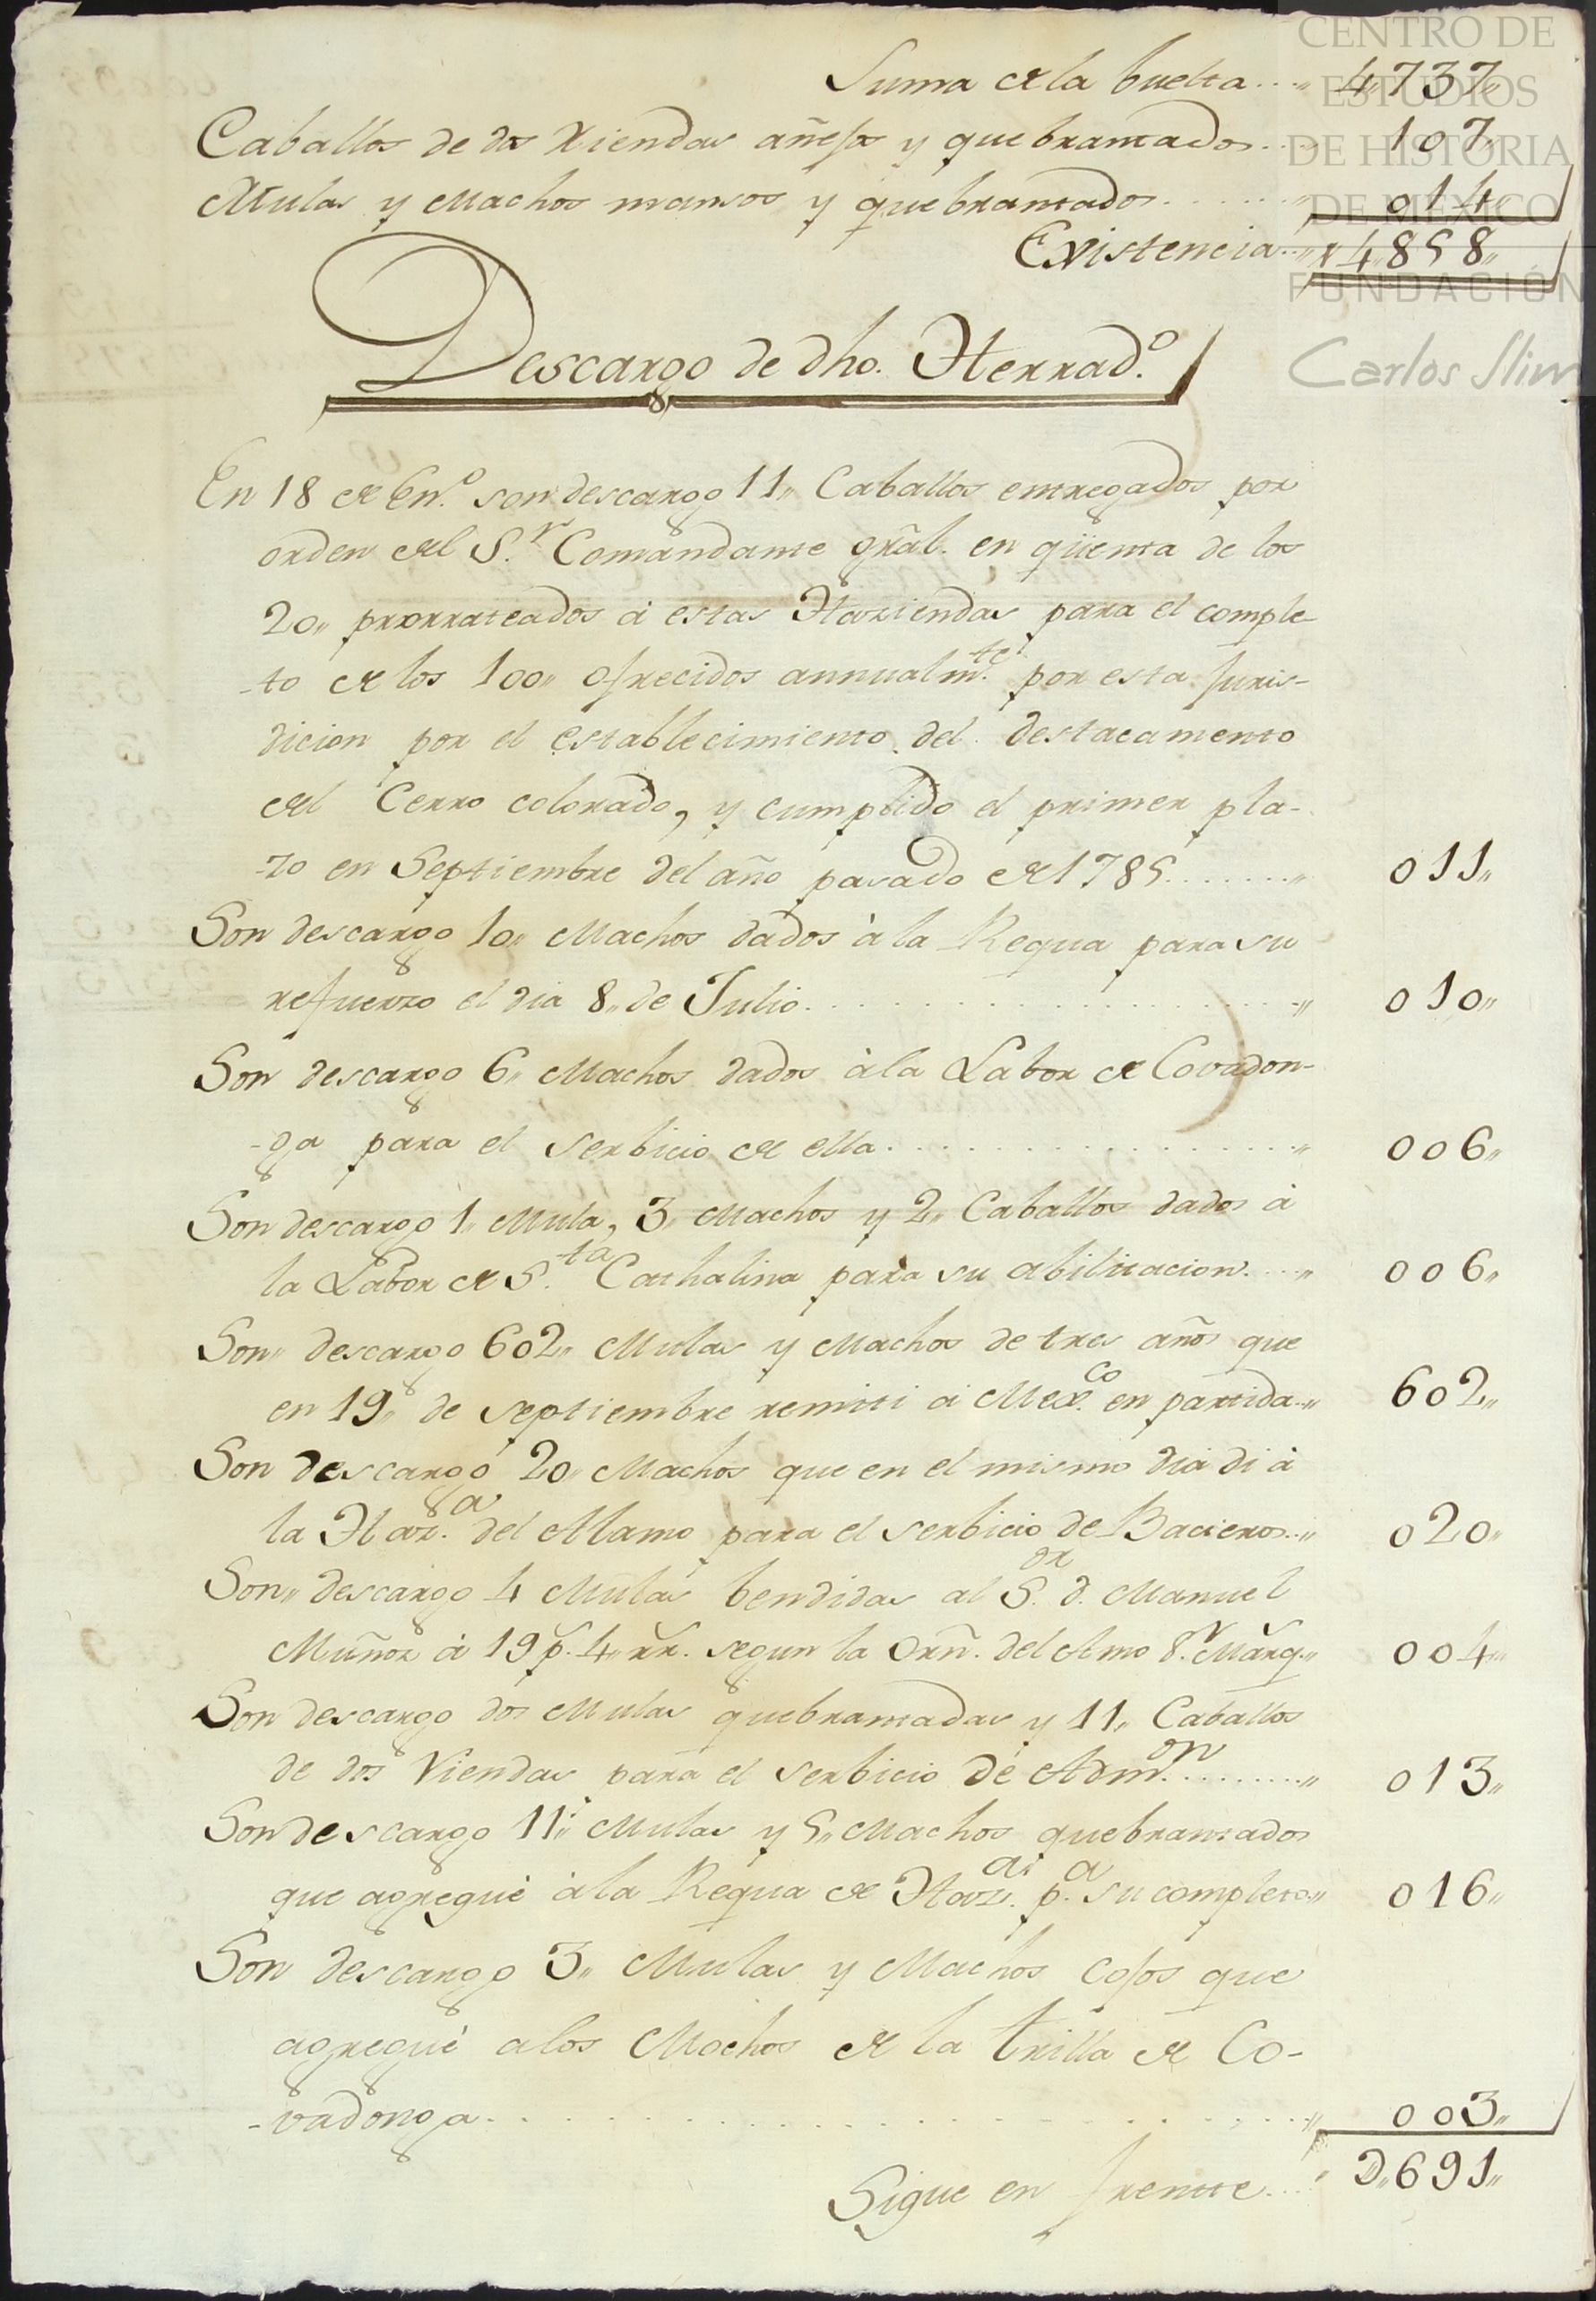 CENTRO DE
ESTUDIOS
DE HISTORIA
DE MÉXICO
FUNDACIÓN
Carlos Slim
Suma de la buelta....,, 4,,737,,
Caballos de dos Riendas añejos y quebrantados.... 107,,
Mulas y Machos mansos y quebrantados.......,, 014,,
Existencia..,, 4,,858,,
Descargo de dho. Herrad.º
En 18 de En.º son descargo 11,, Caballos entregados por
orden del S.r Comandante gr̃al. en qüenta de los
20,, prorrateados à estas Haziendas para el comple-
-to de los 100,, ofrecidos annualm.te por esta Juris-
dicion por el establecimiento del destacamento
del Cerro colorado, y cumplido el primer pla-
-zo en Septiembre del año pasado de 1785.......,, 011,,
Son descargo 10,, Machos dados à la Requa para su
refuerzo el dia 8,, de Julio....................,, 010,,
Son descargo 6,, Machos dados à la Labor de Covadon-
-ga para el serbicio de ella..................,, 006,,
Son descargo 1,, Mula, 3,, Machos y 2,, Caballos dados à
la Labor de S.ta Cathalina para su abilitacion....,, 006,,
Son,, descargo 602,, Mulas y Machos de tres años que
en 19,, de septiembre remiti à Mex.co en partida..,, 602,,
Son descargo 20,, Machos que en el mismo dia di à
la Haz.a del Alamo para el serbicio de Bacieros..,, 020,,
Son,, descargo 4 Mulas bendidas al S.or d. Manuel
Muñoz à 19 p.s 4,, rr.s segun la Orñ. del Amo S.r Marq.s,, 004,,
Son descargo dos Mulas quebrantadas y 11,, Caballos
de dos Riendas para el serbicio de Adm.on.........,, 013,,
Son descargo 11,, Mulas y 5,, Machos quebrantados
que agregué à la Requa de Haz.as p.a su completo,, 016,,
Son descargo 3,, Mulas y Machos cojos que
agregué a los Machos de la trilla de Co-
-vadonga..............................,, 003,,
Sigue en frente.... D,,691,,